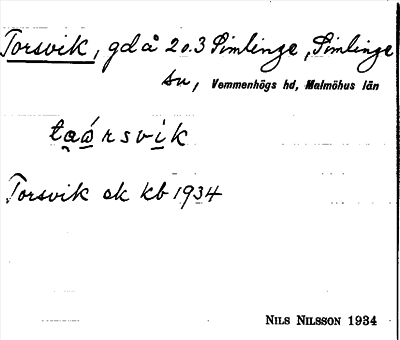 Torsvik, gd å 2 o. 3 Simlinge, Simlinge
sn, Vemmenhögs hd, Malmöhus län
taǻrsvik
Torsvik ek kb 1934
NILS NILSSON 1934